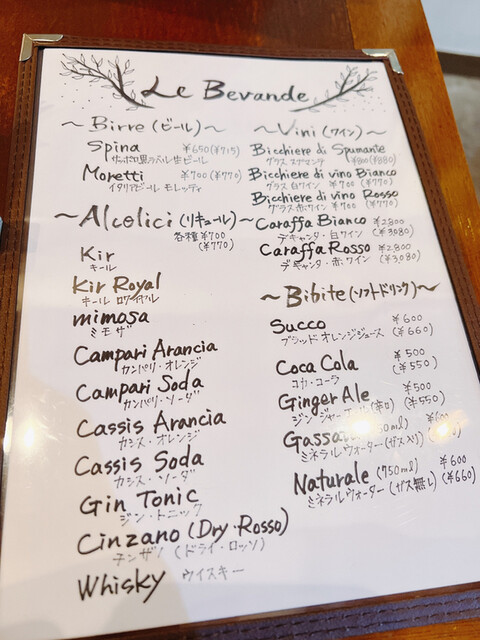 Le Bevande
~Birre (ビール)~
Spina ¥650(¥715)
サッポロ黒ラベル生ビール
Moretti ¥700(¥770)
イタリアビール モレッティ
~Alcolici (リキュール)~
各種¥700
(¥770)
Kir
キール
Kir Royal
キール ロワイヤル
mimosa
ミモザ
Campari Arancia
カンパリ・オレンジ
Campari Soda
カンパリ・ソーダ
Cassis Arancia
カシス・オレンジ
Cassis Soda
カシス・ソーダ
Gin Tonic
ジン・トニック
Cinzano (Dry・Rosso)
チンザノ (ドライ・ロッソ)
Whisky ウイスキー
~Vini (ワイン)~
Bicchiere di Spumante
グラス スプマンテ ¥800(¥880)
Bicchiere di vino Bianco
グラス白ワイン ¥700 (¥770)
Bicchiere di vino Rosso
グラス赤ワイン ¥700 (¥770)
Caraffa Bianco ¥2800
デキャンタ・白ワイン (¥3080)
Caraffa Rosso ¥2800
デキャンタ・赤ワイン (¥3080)
~Bibite (ソフトドリンク)~
Succo ¥600
ブラッドオレンジジュース (¥660)
Coca Cola ¥500
コカ・コーラ (¥550)
Ginger Ale ¥500
ジンジャー (辛口) (¥550)
ミネラルウォーター(ガス入り)
Naturale (750ml) ¥600
ミネラルウォーター (ガス無し) (¥660)